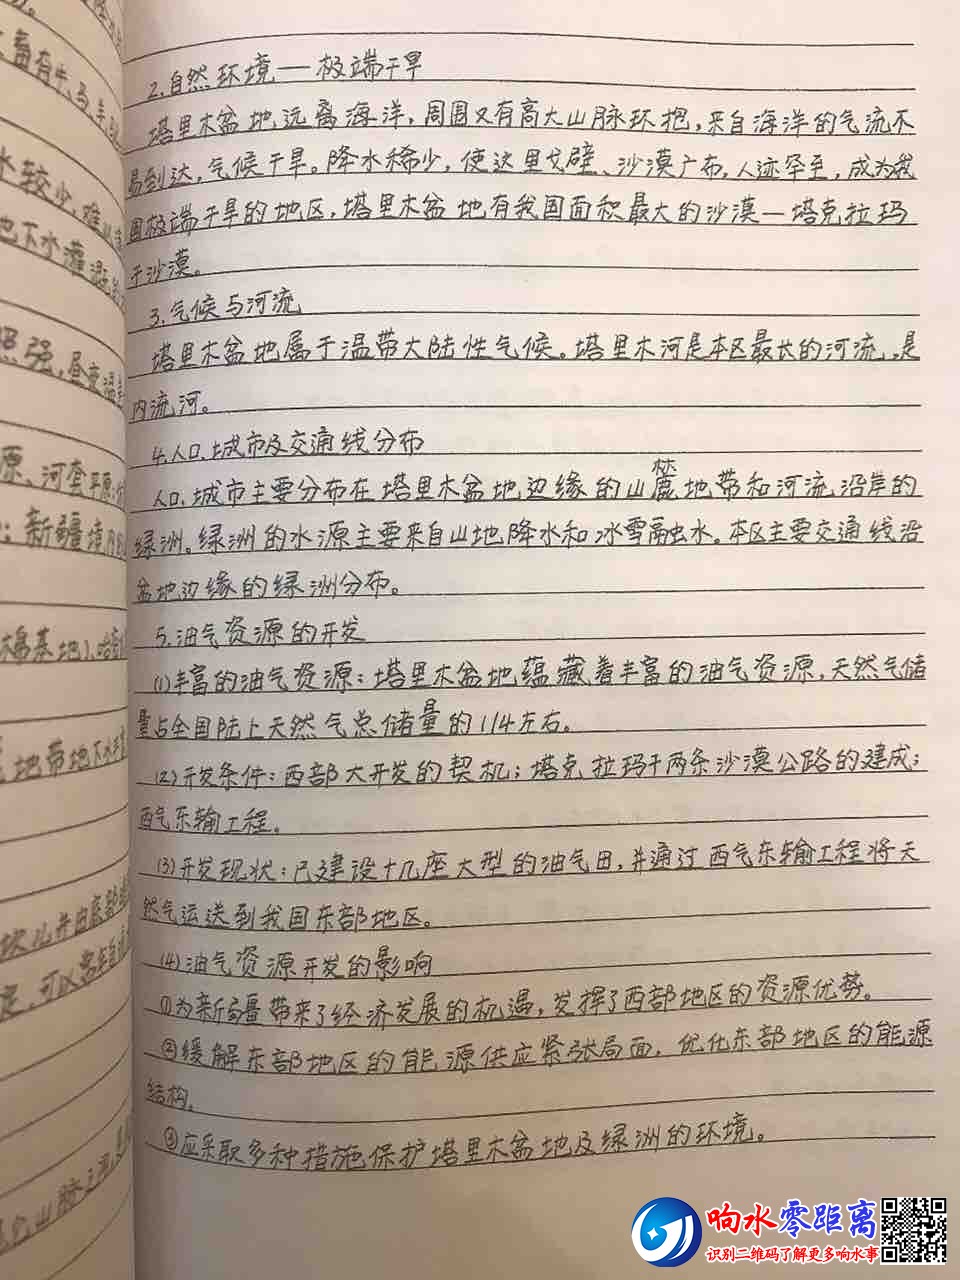 2.自然环境—极端干旱
塔里木盆地远离海洋，周围又有高大山脉环抱，来自海洋的气流不
易到达，气候干旱。降水稀少，使这里戈壁、沙漠广布，人迹罕至，成为我
国极端干旱的地区，塔里木盆地有我国面积最大的沙漠—塔克拉玛
干沙漠。
3.气候与河流
塔里木盆地属于温带大陆性气候。塔里木河是本区最长的河流，是
内流河。
4.人口、城市及交通线分布
人口、城市主要分布在塔里木盆地边缘的山麓地带和河流沿岸的
绿洲。绿洲的水源主要来自山地降水和冰雪融水。本区主要交通线沿
盆地边缘的绿洲分布。
5.油气资源的开发
(1)丰富的油气资源：塔里木盆地蕴藏着丰富的油气资源，天然气储
量占全国陆上天然气总储量的1/4左右。
(2)开发条件：西部大开发的契机；塔克拉玛干两条沙漠公路的建成；
西气东输工程。
(3)开发现状：已建设十几座大型的油气田，并通过西气东输工程将天
然气运送到我国东部地区。
(4)油气资源开发的影响
①为新疆带来了经济发展的机遇，发挥了西部地区的资源优势。
②缓解东部地区的能源供应紧张局面，优化东部地区的能源
结构。
③应采取多种措施保护塔里木盆地及绿洲的环境。
畜有牛、马、羊
水较少，难以
地下水灌溉
照强，昼夜温差
原、河套平原
新疆境内
棉基地)、哈密
地带地下水丰
坎儿井由
山脉之间
响水零距离
识别二维码了解更多响水事